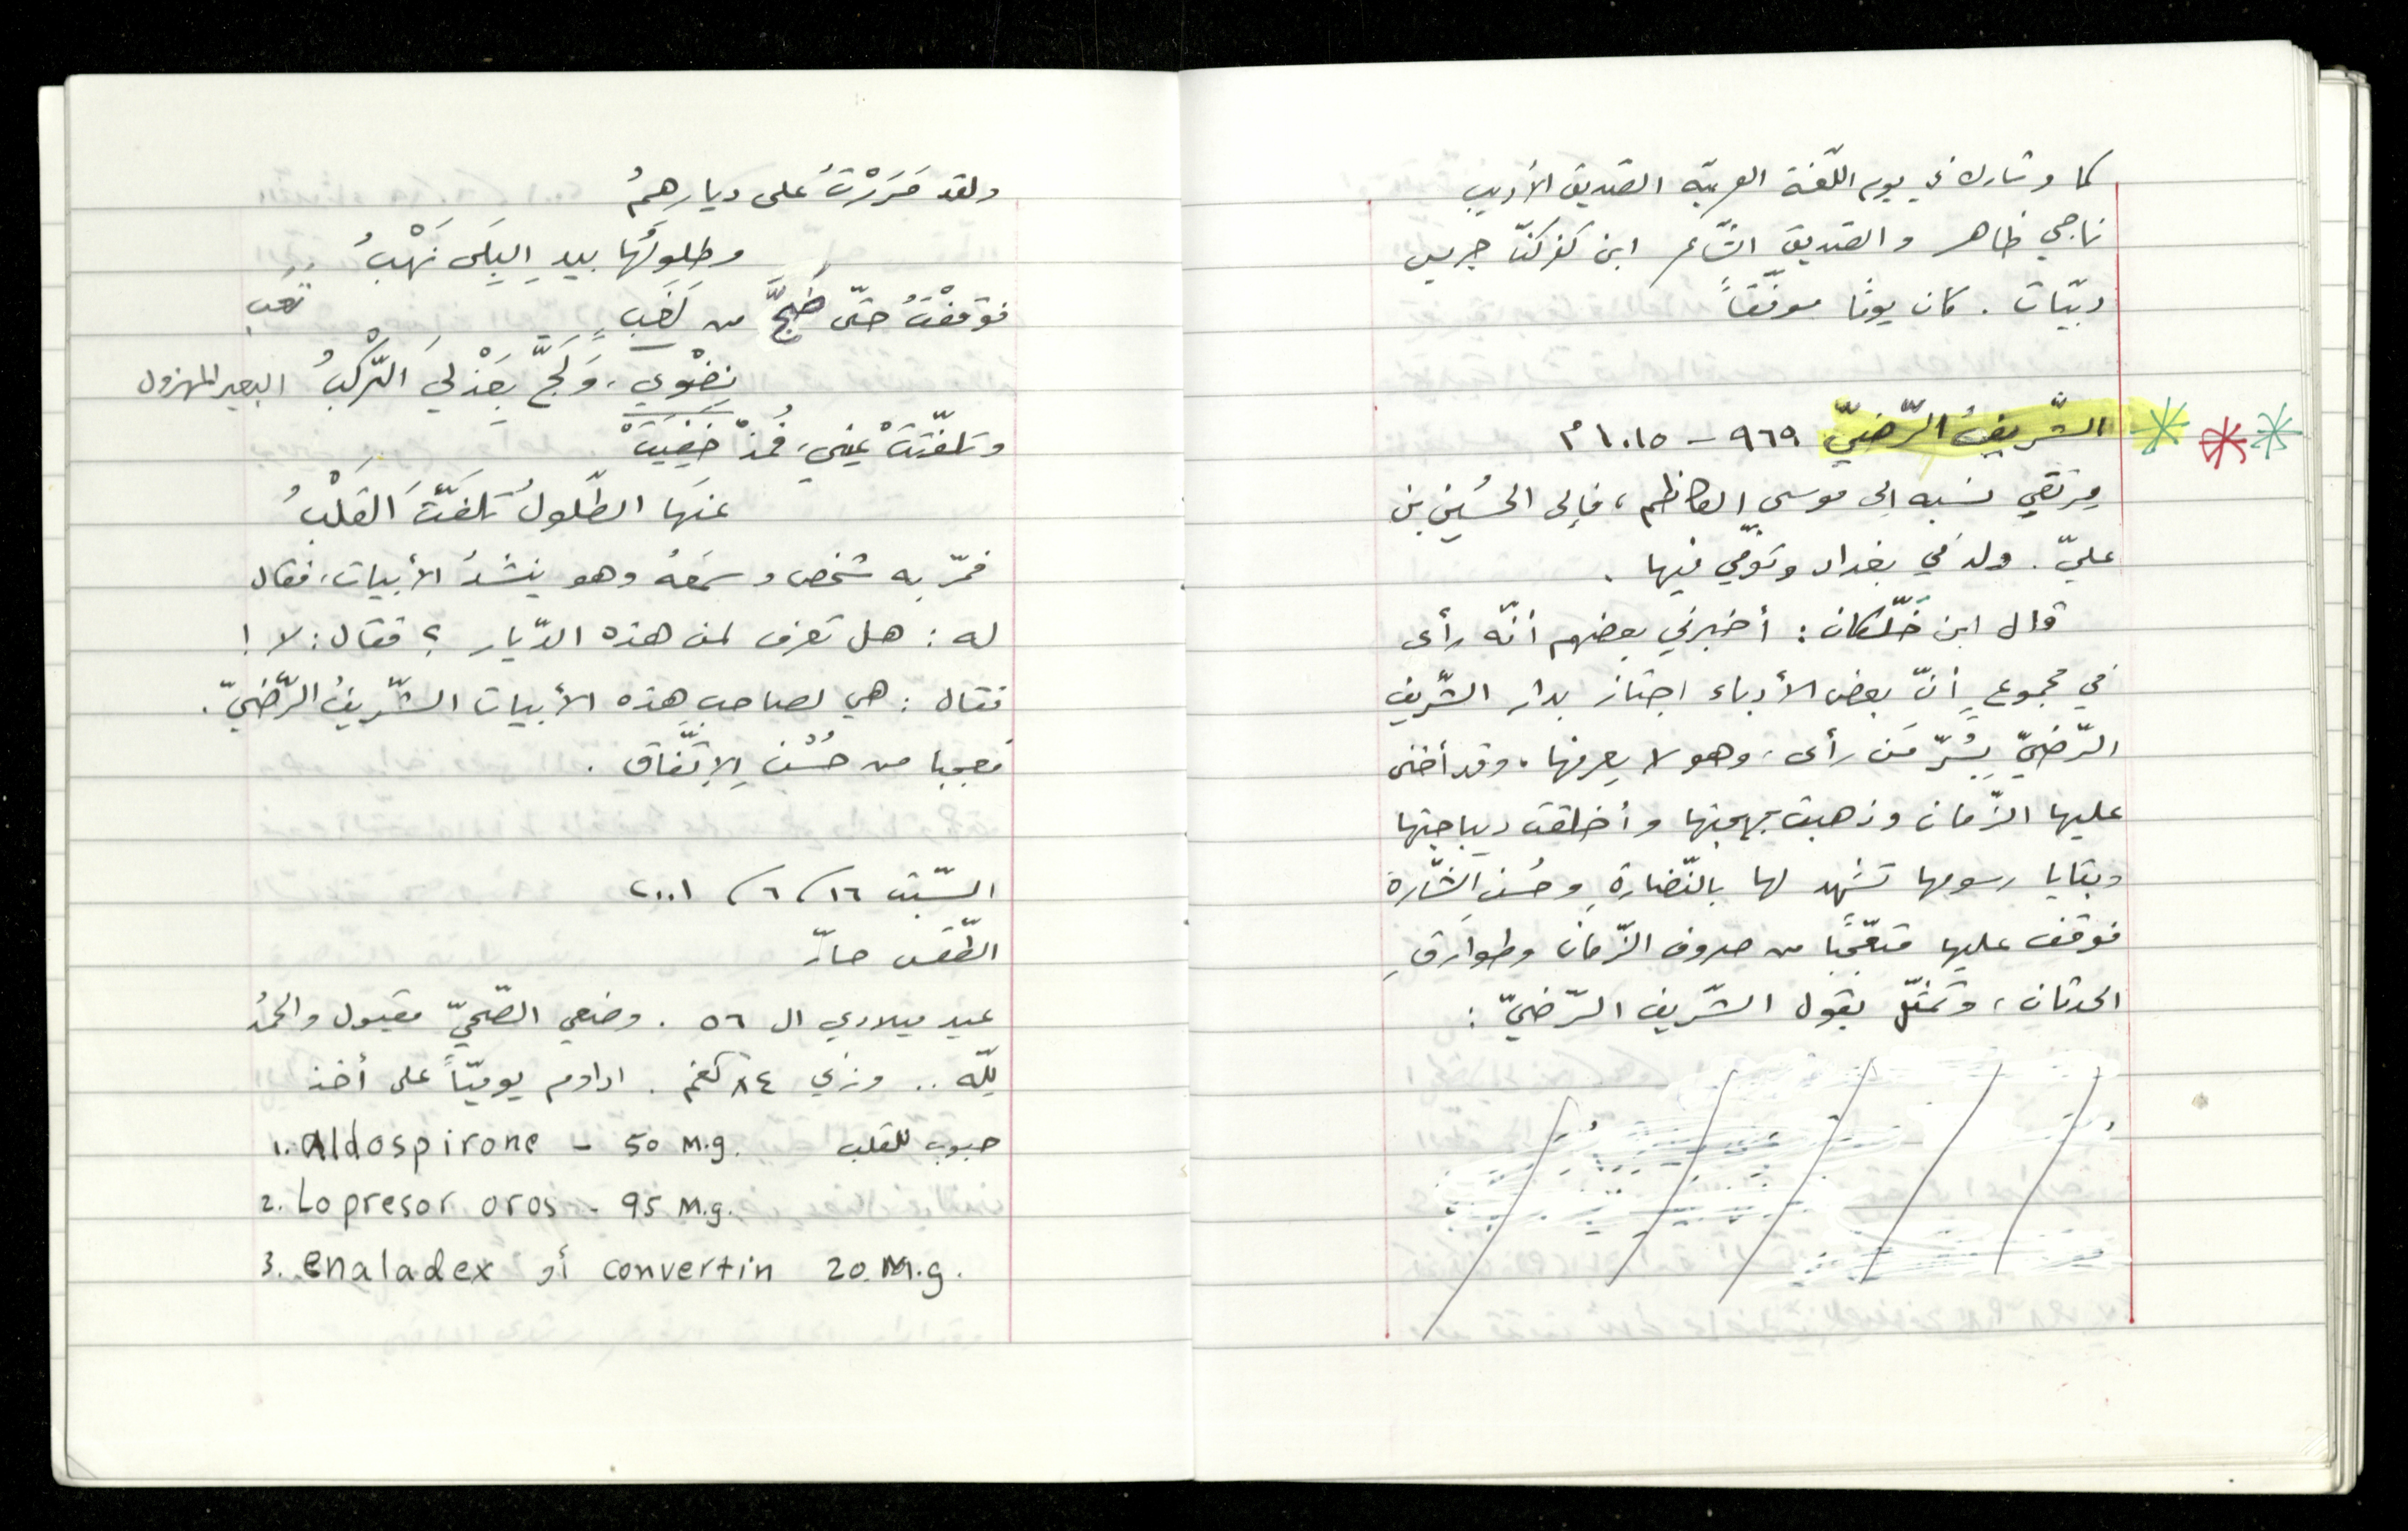 كما وشارك في يوم اللّغة العربيّة الصّديق الأديب
ناجي ظاهر والصّديق الشّاعر ابن كفركنّا جريس
دبيّات . كان يومًا موفّقاً
الشّريفُ الرّضيّ ٩٦٩ - ١٠١٥ م
يرتقي نسبه إلى موسى الكاظم، فإلى الحُسَين بن
عليّ . ولد في بغداد وتوفّي فيها .
قال ابن خَلّكان : أخبرني بعضهم أنّه رأى
في مجموعٍ أنّ بعض الأدباء اجتاز بدار الشّريف
الرّضيّ بِسُرّ مَن رأى، وهو لا يعرفها، وقد أخنى
عليها الزّمان وذهبت بهجتها وأخلقت ديباجتها
وبقايا رسومها تشهد لها بالنّضارةِ وحُسنِ الشّارة
فوقف عليها متعجّبًا من صروف الزّمان وطوارقِ
الحدثان، وتمثّل بقول الشّريف الرّضيّ :
ولقد مَرَرْتُ على ديارهمُ
وطلولُها بيدِ البِلَى نَهْبُ
فوقفْتُ حتّى ضَجَّ من لَغَبٍ تَعَب
نِضْوي، وَلَجَّ بِعَذْلي الرّكْبُ البعير المهزول
وتلفّتَتْ عيني، فمُذْ خَفِيَتْ
عنها الطّلولُ تَلَفّتَ القَلْبُ
فمرّ به شخص وسمعهُ وهو ينشدُ الأبيات، فقال
له : هل تعرف لمن هذه الدّيار ؟ فقال : لا !
فقال : هي لصاحب هذه الأبيات الشّريفُ الرّضيّ .
فعجبا من حُسْنِ الاِتّفَاق .
السّبت ١٦ / ٦ / ٢٠٠١
الطّقس حارّ
عيد ميلادي ال ٥٦ . وضعي الصّحيّ مقبول والحمدُ
للّه .. وزني ٨٤ كغم . اداوم يوميّاً على أخذ
حبوب للقلب 1. Aldospirone - 50 M.g.
2. Lopresor oros - 95 M.g.
3. enaladex أو convertin 20 M.g.